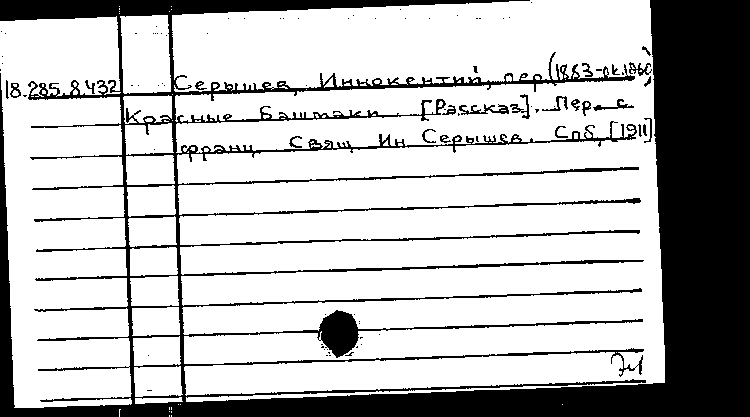 18.285.8.432 Серышев, Иннокентий, пер. (1883-ок.1960)
Красные башмаки. [Рассказ]. Пер. с
франц. Свящ. Ин. Серышев. Спб, [1911].